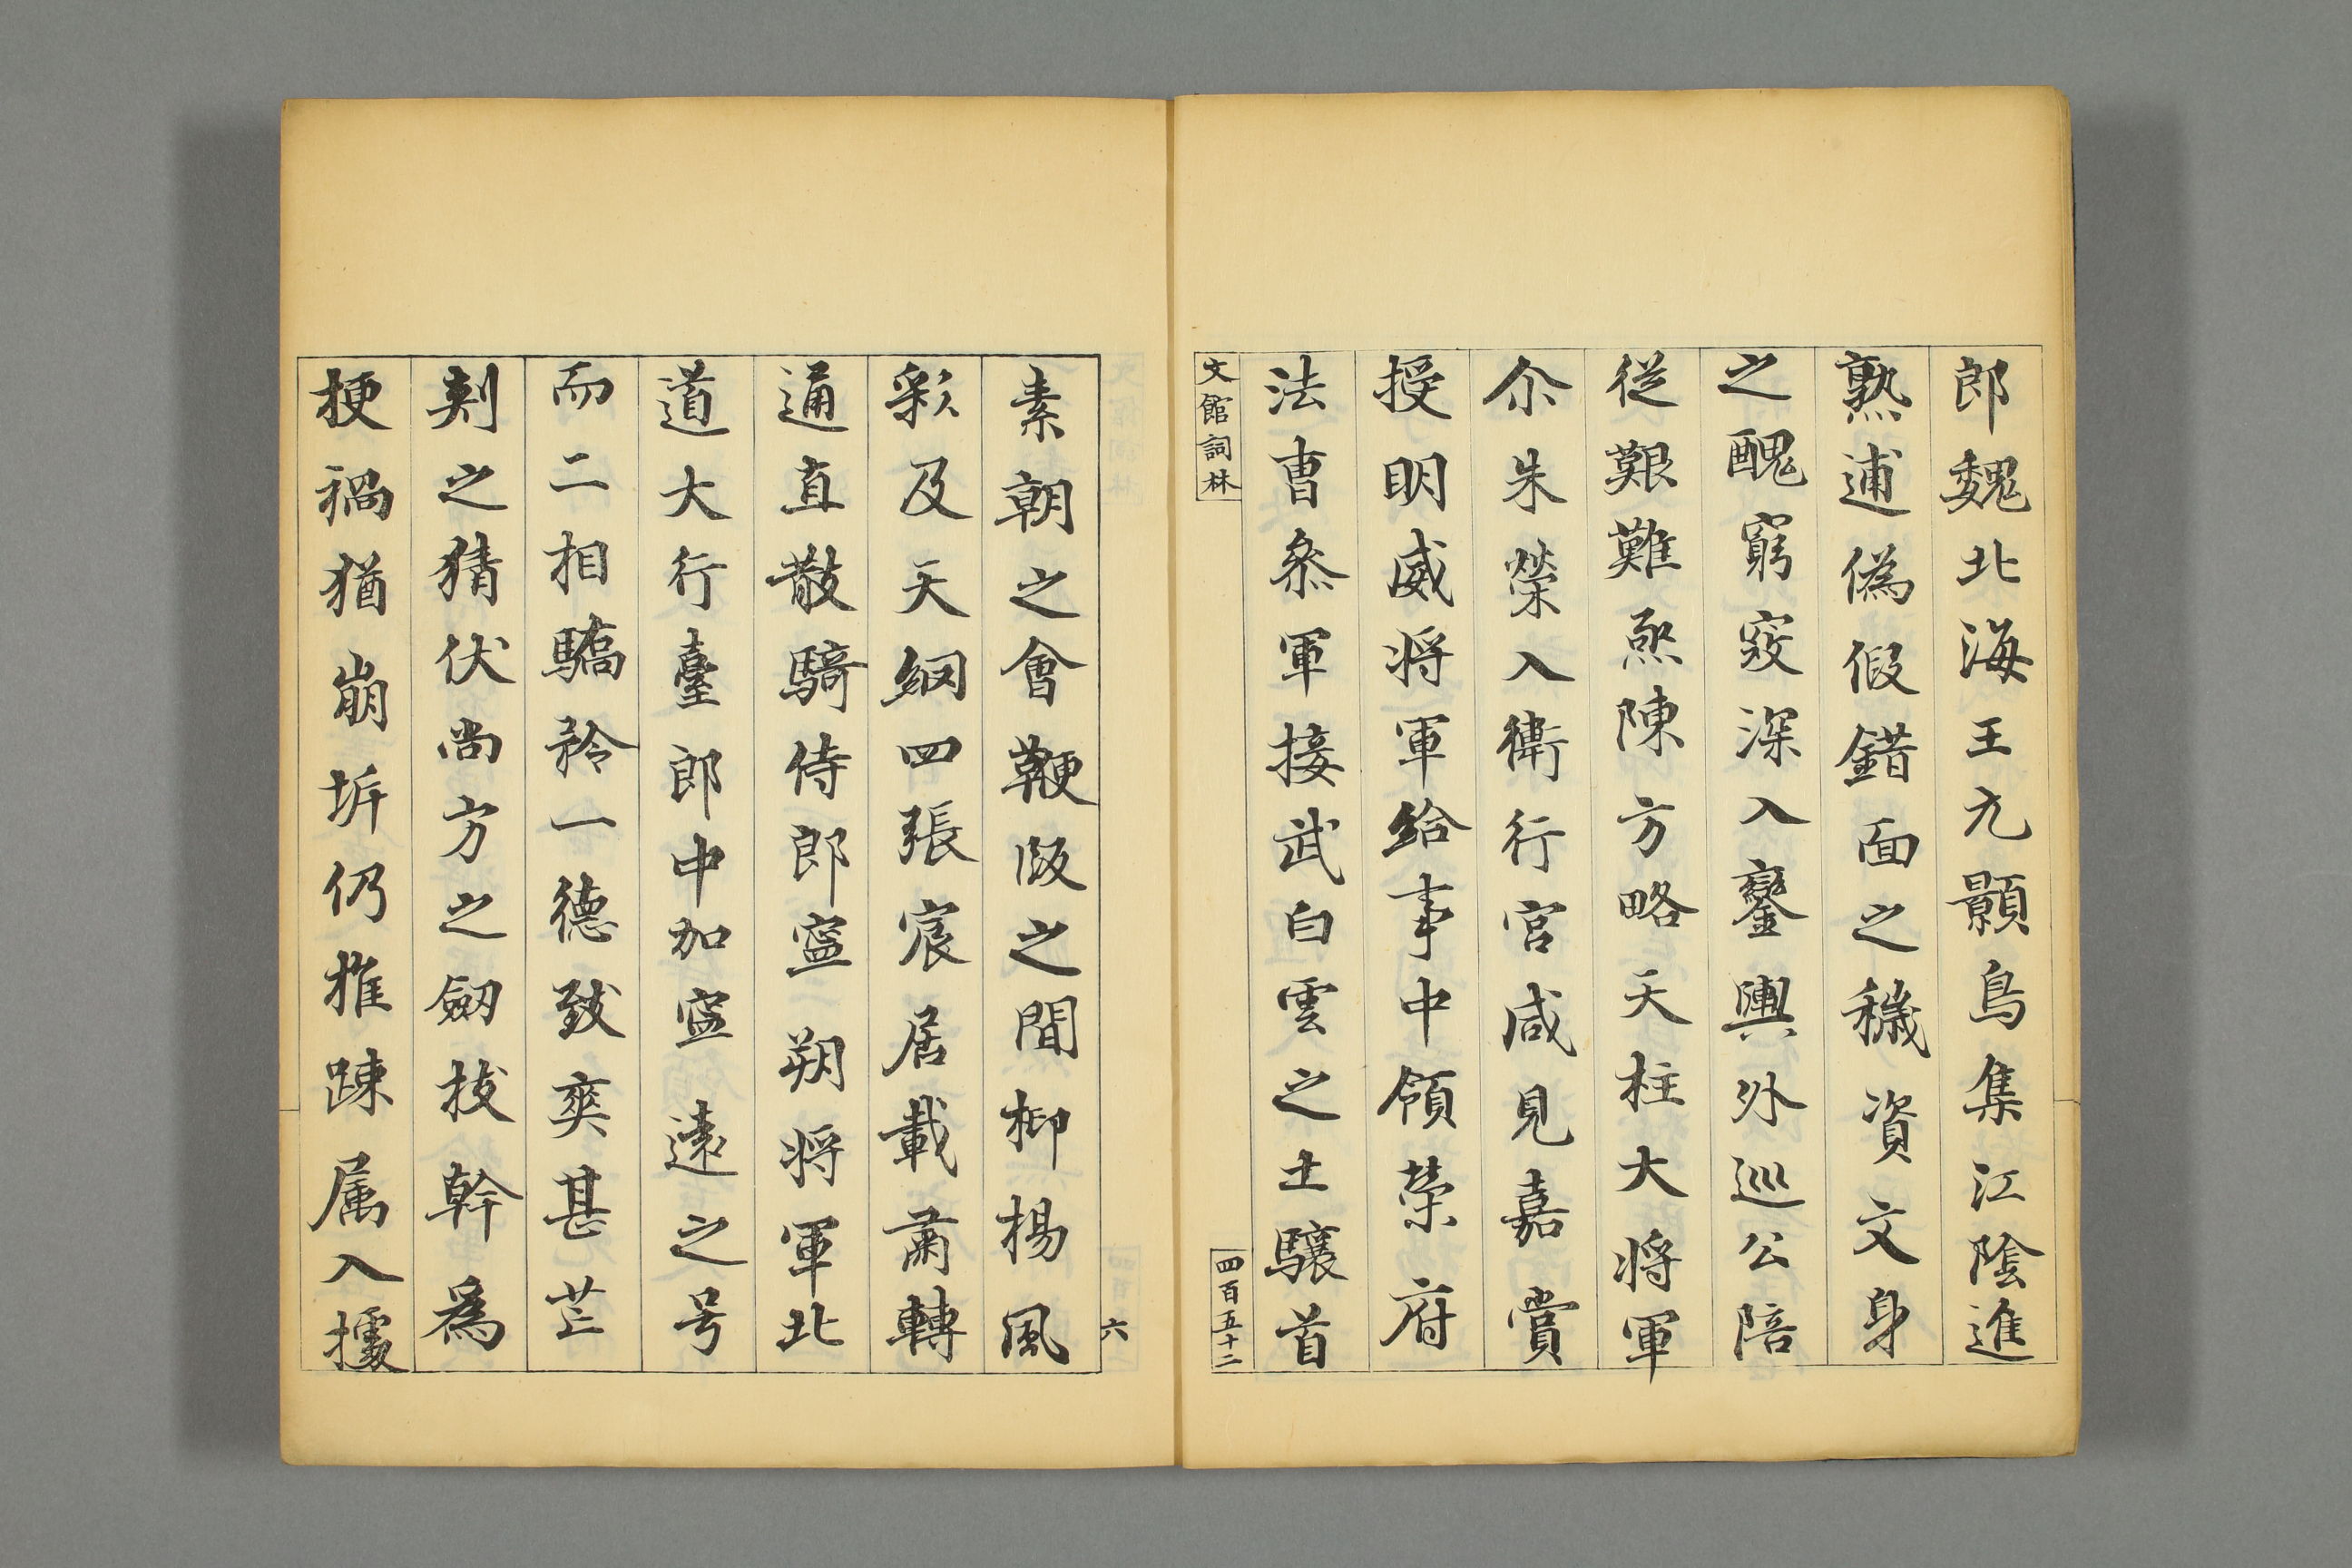 郎魏北海王元顥鳥集江陰進
熟逋偽假錯面之穢資文身
之醜窮窺深入鑾輿外巡公陪
從艱難烝陳方略天柱大將軍
尒朱榮入衛行宮咸見嘉賞
授明威将軍給事中領榮府
法曹叅軍接武白雲之士驤首
文館詞林
四百五十二
六
素朝之會鞭阪之間柳楊風
彩及天綱四張宸居載肅轉
通直散騎侍郎寧朔将軍北
道大行臺郎中加寧遠之号
而二相驕矜一德致奕甚芒
刾之猜伏尚方之劒拔幹為
梗禍猶崩坼仍推踈属入攄